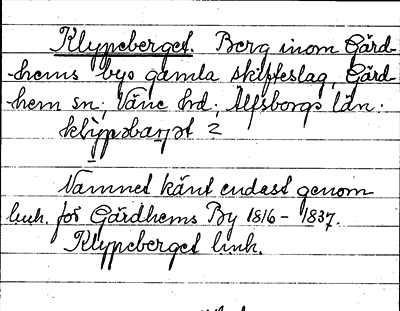 Klyppeberget. Berg inom Gärd-
-hems bys gamla skifteslag, Gärd
-hem sn; Väne hd; Älfsborgs län:
klypəbarjət 2
Namnet känt endast genom
lmh. för Gärdhems By 1816 - 1837.
Klyppeberget lmh.